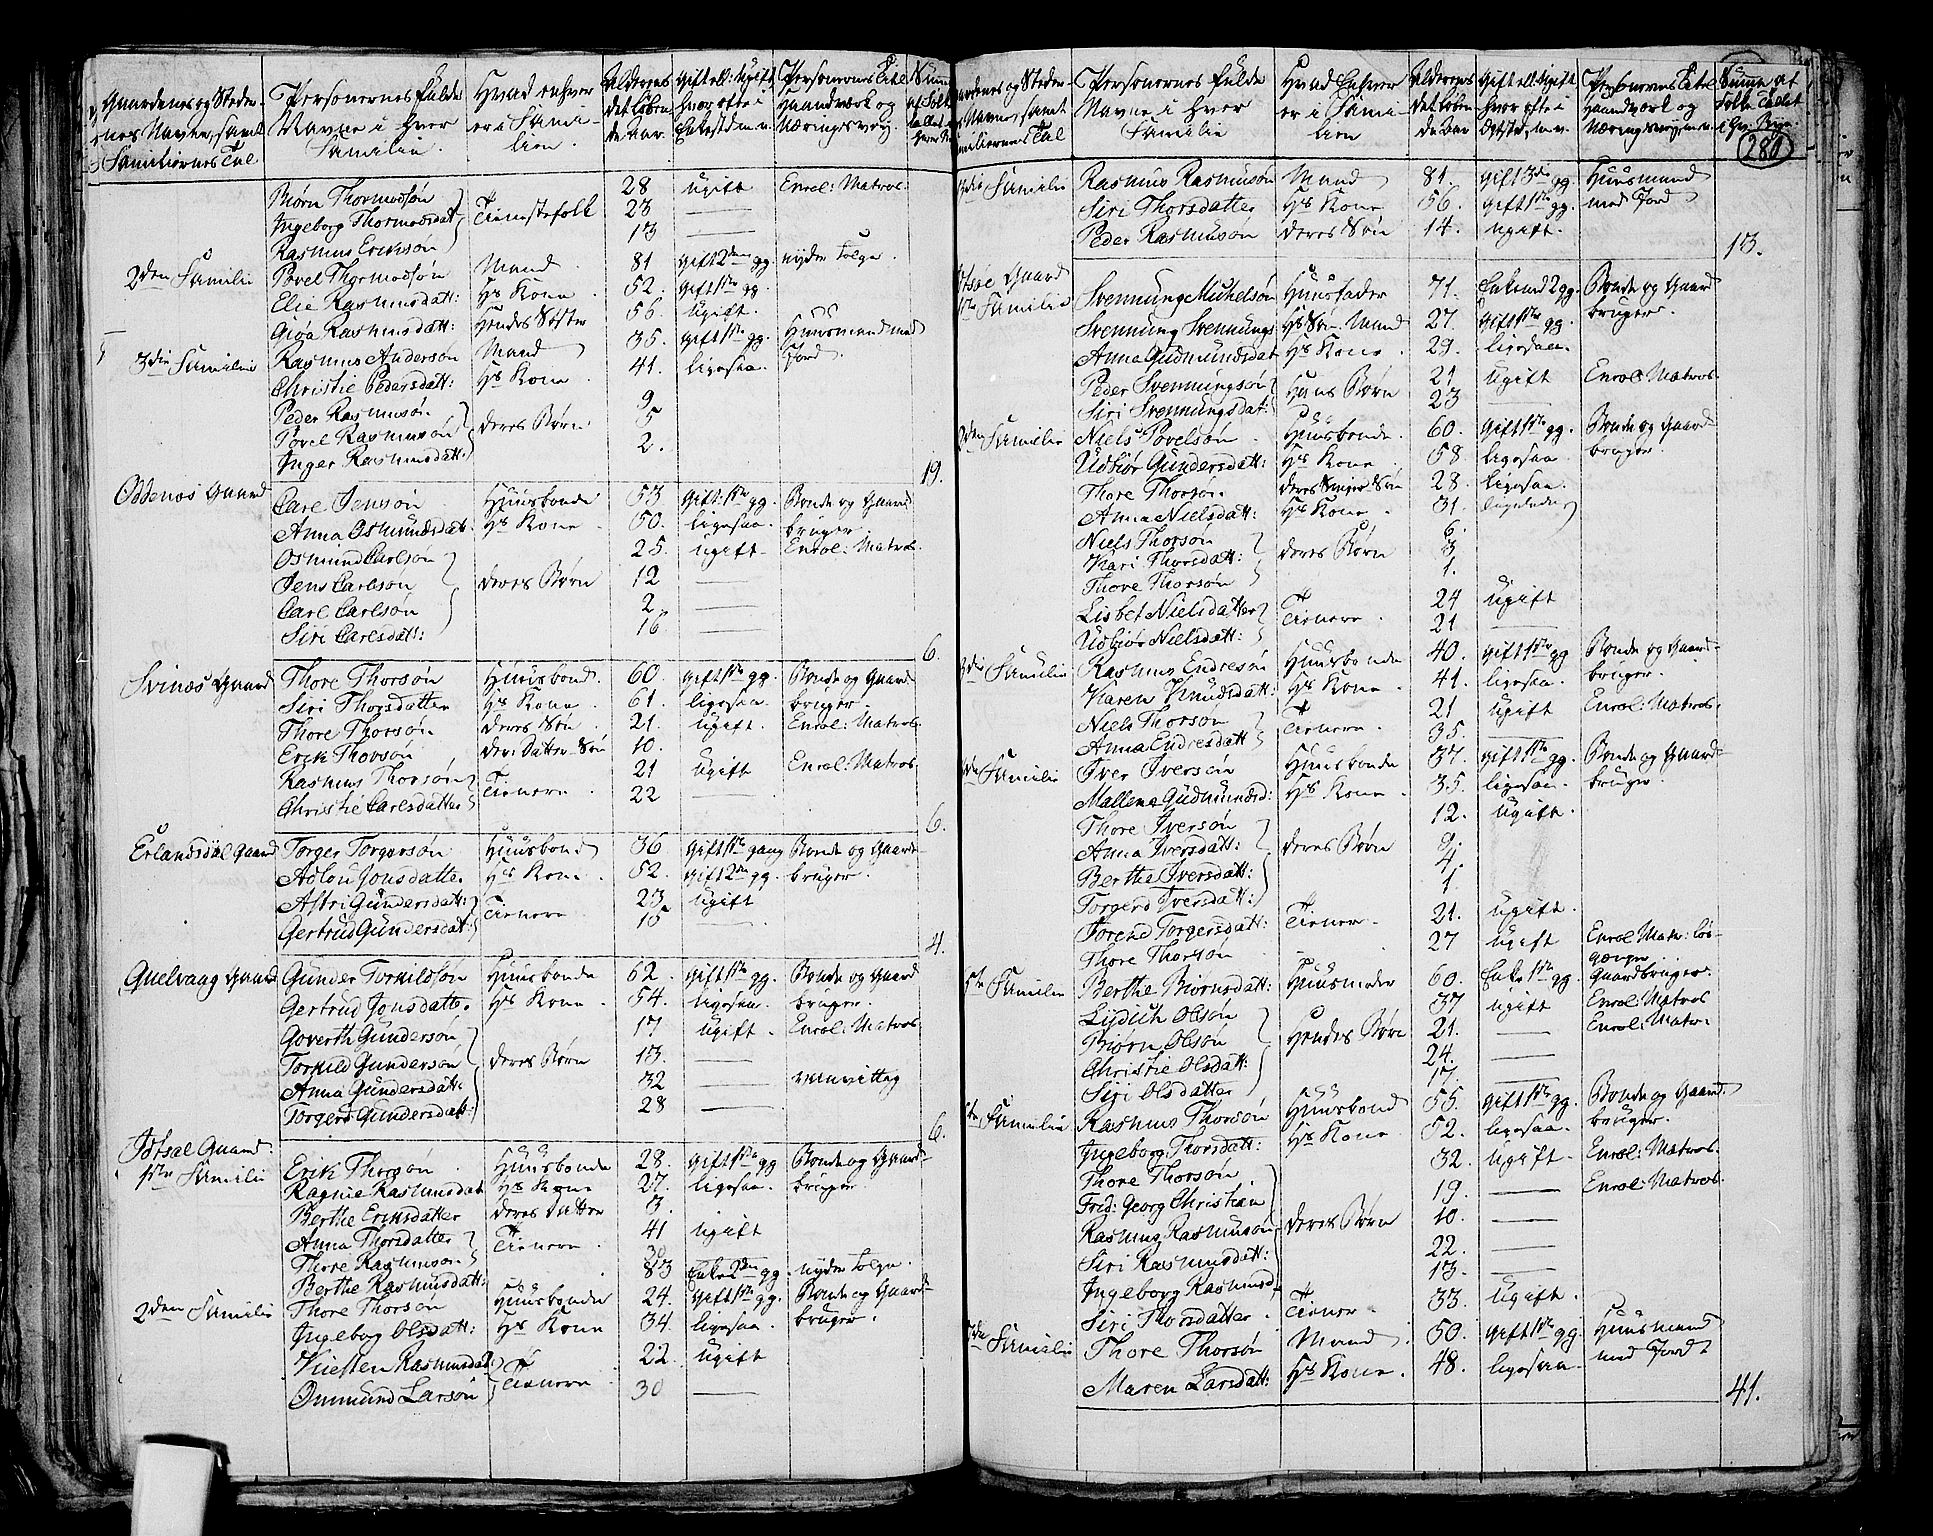 Gaardenes og Steder-
nes Navne, samt
Familiernes Tal
Personernes fulde
Navne i hver
Familie.
Hvad enhver
er i Fami-
lien.
Alderens
det løben-
de Aar.
Gift ell: Ugift
hvor ofte i
Personernes Titel
Haandværk og
Næringsvey.
Biørn Thormodsøn 28 ugift Enrol: Matros.
Ingeborg Thormodsdat Tienestefolk 23 —
Rasmus Eriksøn 13 —
2den Familie Povel Thormodsøn Mand 81 Gift 2den gg. nyder Folge.
Elie Rasmusdatt: Hs Kone 52. Gift 1ste gg.
Giøa Rasmusdatt: Hendes Søster 56. ugift.
3die Familie Rasmus Andersøn Mand 35. Gift 1ste gg. Huusmand med
Jord.
Christie Pedersdatt: Hs Kone 41. ligesaa.
Peder Rasmusøn 9
Povel Rasmusøn deres Børn 5
Inger Rasmusdatt: 2.
19.
Oddenes Gaard Carl Jensøn Huusbonde 53 Gift 1ste gg. Bonde og Gaard
Anna Osmundsdatt: Hs Kone 50. ligesaa. bruger.
Osmund Carlsøn 25. ugift Enrol: Matros.
Jens Carlsøn deres Børn 12 —
Carl Carlsøn 2. —
Siri Carlsdatt: 16 —
6.
Svinæs Gaard Thore Thorsøn Huusbond. 60. Gift 1ste gg. Bonde og Gaard
Siri Thorsdatter Hs Kone 61. ligesaa bruger.
Thore Thorsøn deres Søn 21. ugift Enrol: Matros
Erik Thorsøn der: Datter Søn 10.
Rasmus Thorsøn Tienere 21 ugift Enrol: Matros.
Christie Carlsdatter 22 —
6.
Erlandsdal Gaard Torger Torgersøn Huusbond 36 Gift 1ste gang Bonde og Gaard-
Adlou Jonsdatter Hs Kone 52. Gift 2den gg. bruger.
Astri Gundersdatt: Tienere 23 ugift
Gertrud Gundersdat: 15 —
4.
Quelvaag Gaard Gunder Torkildsøn Huusbonde 62. Gift 1ste gg. Bonde og Gaard
Gertrud Jonsdatter Hs Kone 54. ligesaa. bruger.
Goverth Gundersøn 17 ugift Enrol: Matros
Torkild Gundersøn deres Børn 13. —
Anna Gundersdatt: 32 — vanvittig
Torgerd Gundersdatt: 28 —
6.
Jdtsal Gaard.
1ste Familie Erik Thorsøn Huusbonde 28. Gift 1ste gg Bonde og Gaard-
Ragnie Rasmusdat Hs Kone 27. ligesaa. bruger
Berthe Eriksdatter deres Datter 3.
Anna Thorsdatter Tienere 41 ugift
Thore Rasmusøn 30
Berthe Rasmusdatt: 83 Enke 2den gg. nyder Folge.
2den Familie Thore Thorsøn Huusbonde 24. Gift 1ste gg. Bonde og Gaard-
Ingeborg Olsdatt: Hs Kone 34. ligesaa. bruger.
Kiesten Rasmusdat: Tienere 22. ugift
Ommund Larsøn 30 —
Gaardenes og Steder-
nes Navne, samt
Familiernes Tal
Personernes fulde
Navne i hver
Familie
Hvad Enhver
er i Fami-
lien
Alderens
det løben-
de Aar
Gift ell: Ugift
hvor ofte i
Personernes Titel
Haandværk og
Summa af
Folke Tallet
280
3die Familie Rasmus Rasmusøn Mand 81. Gift 3die gg. Huusmand
Siri Thorsdatter Hs Kone 56. Gift 1ste gg. med Jord
Peder Rasmusøn deres Søn 14. ugift.
13.
Gaard
1ste Familie Svennung Michelsøn Huusfader 71. Enkemd 2 gg. Bonde og Gaard
Svennung Svennungs Hs Søn Mand 27. Gift 1ste gg. bruger.
Anna Gudmundsdat Hs Kone 29. ligesaa.
Peder Svennungsøn Hans Børn 21 ugift Enrol: Matros.
Siri Svennungsdat: 23
2den Familie Niels Povelsøn Huusbonde. 60. Gift 1ste gg. Bonde og Gaard
Udbiør Gundersdatt: Hs Kone 58 ligesaa. bruger.
Thore Thorsøn deres Sviger Søn 28. ligesaa.
Anna Nielsdatt: Hs Kone 31.
Niels Thorsøn 6.
Kari Thorsdatt: deres Børn 3
Thore Thorsøn 1.
Lisbet Nielsdatter Tienere 24 ugift
Udbiør Nielsdatt: 21 —
3die Familie Rasmus Endresøn Huusbonde 40. Gift 1ste gg Bonde og Gaard-
Karen Knudsdatt: Hs Kone 41. ligesaa. bruger.
Niels Thorsøn Tienere 21 ugift Enrol: Matros.
Anna Endresdatt 35. —
Familie Iver Iversøn Huusbonde 37. Gift 1ste gg. Bonde og Gaard-
Mallena Gudmundsd: Hs Kone 35. ligesaa. bruger
Thore Iversøn 12. ugift.
Anna Iversdatt: deres Børn 9.
Berthe Iversdatt: 4.
Torgerd Iversdatt: 1.
Torend Torgersdatt: Tienere 21. ugift.
Thore Thorsøn 27 ugift Enrol Matr: løs-
gænger
5te Familie Berthe Biørnsdatt: Huusmoder 60. Enke 1ste gg. Gaardbruger.
Lydich Olsøn 37 ugift Enrol: Matros
Biørn Olsøn Hendes Børn 21. — Enrol: Matr.
Christie Olsdatt: 24. —
Siri Olsdatter 17. —
Familie Rasmus Thorsøn Huusbond 55. Gift 1ste gg. Bonde og Gaard.
Ingeborg Thorsdatt: Hs Kone 52. ligesaa. bruger.
Thore Thorsøn. 32. ugift. Enrol: Matros.
Frid: Georg Christian 19. — Enrol: Matros.
Rasmus Rasmusøn deres Børn 10. —
Siri Rasmusdatt: 22. —
Ingeborg Rasmusd 13. —
Siri Thorsdatter Tiener 33. ugift.
7de Familie Thore Thorsøn Mand 50. Gift 1ste gg. Huusmand
Maren Larsdatt: Hs Kone. 48. ligesaa med Jord
41.